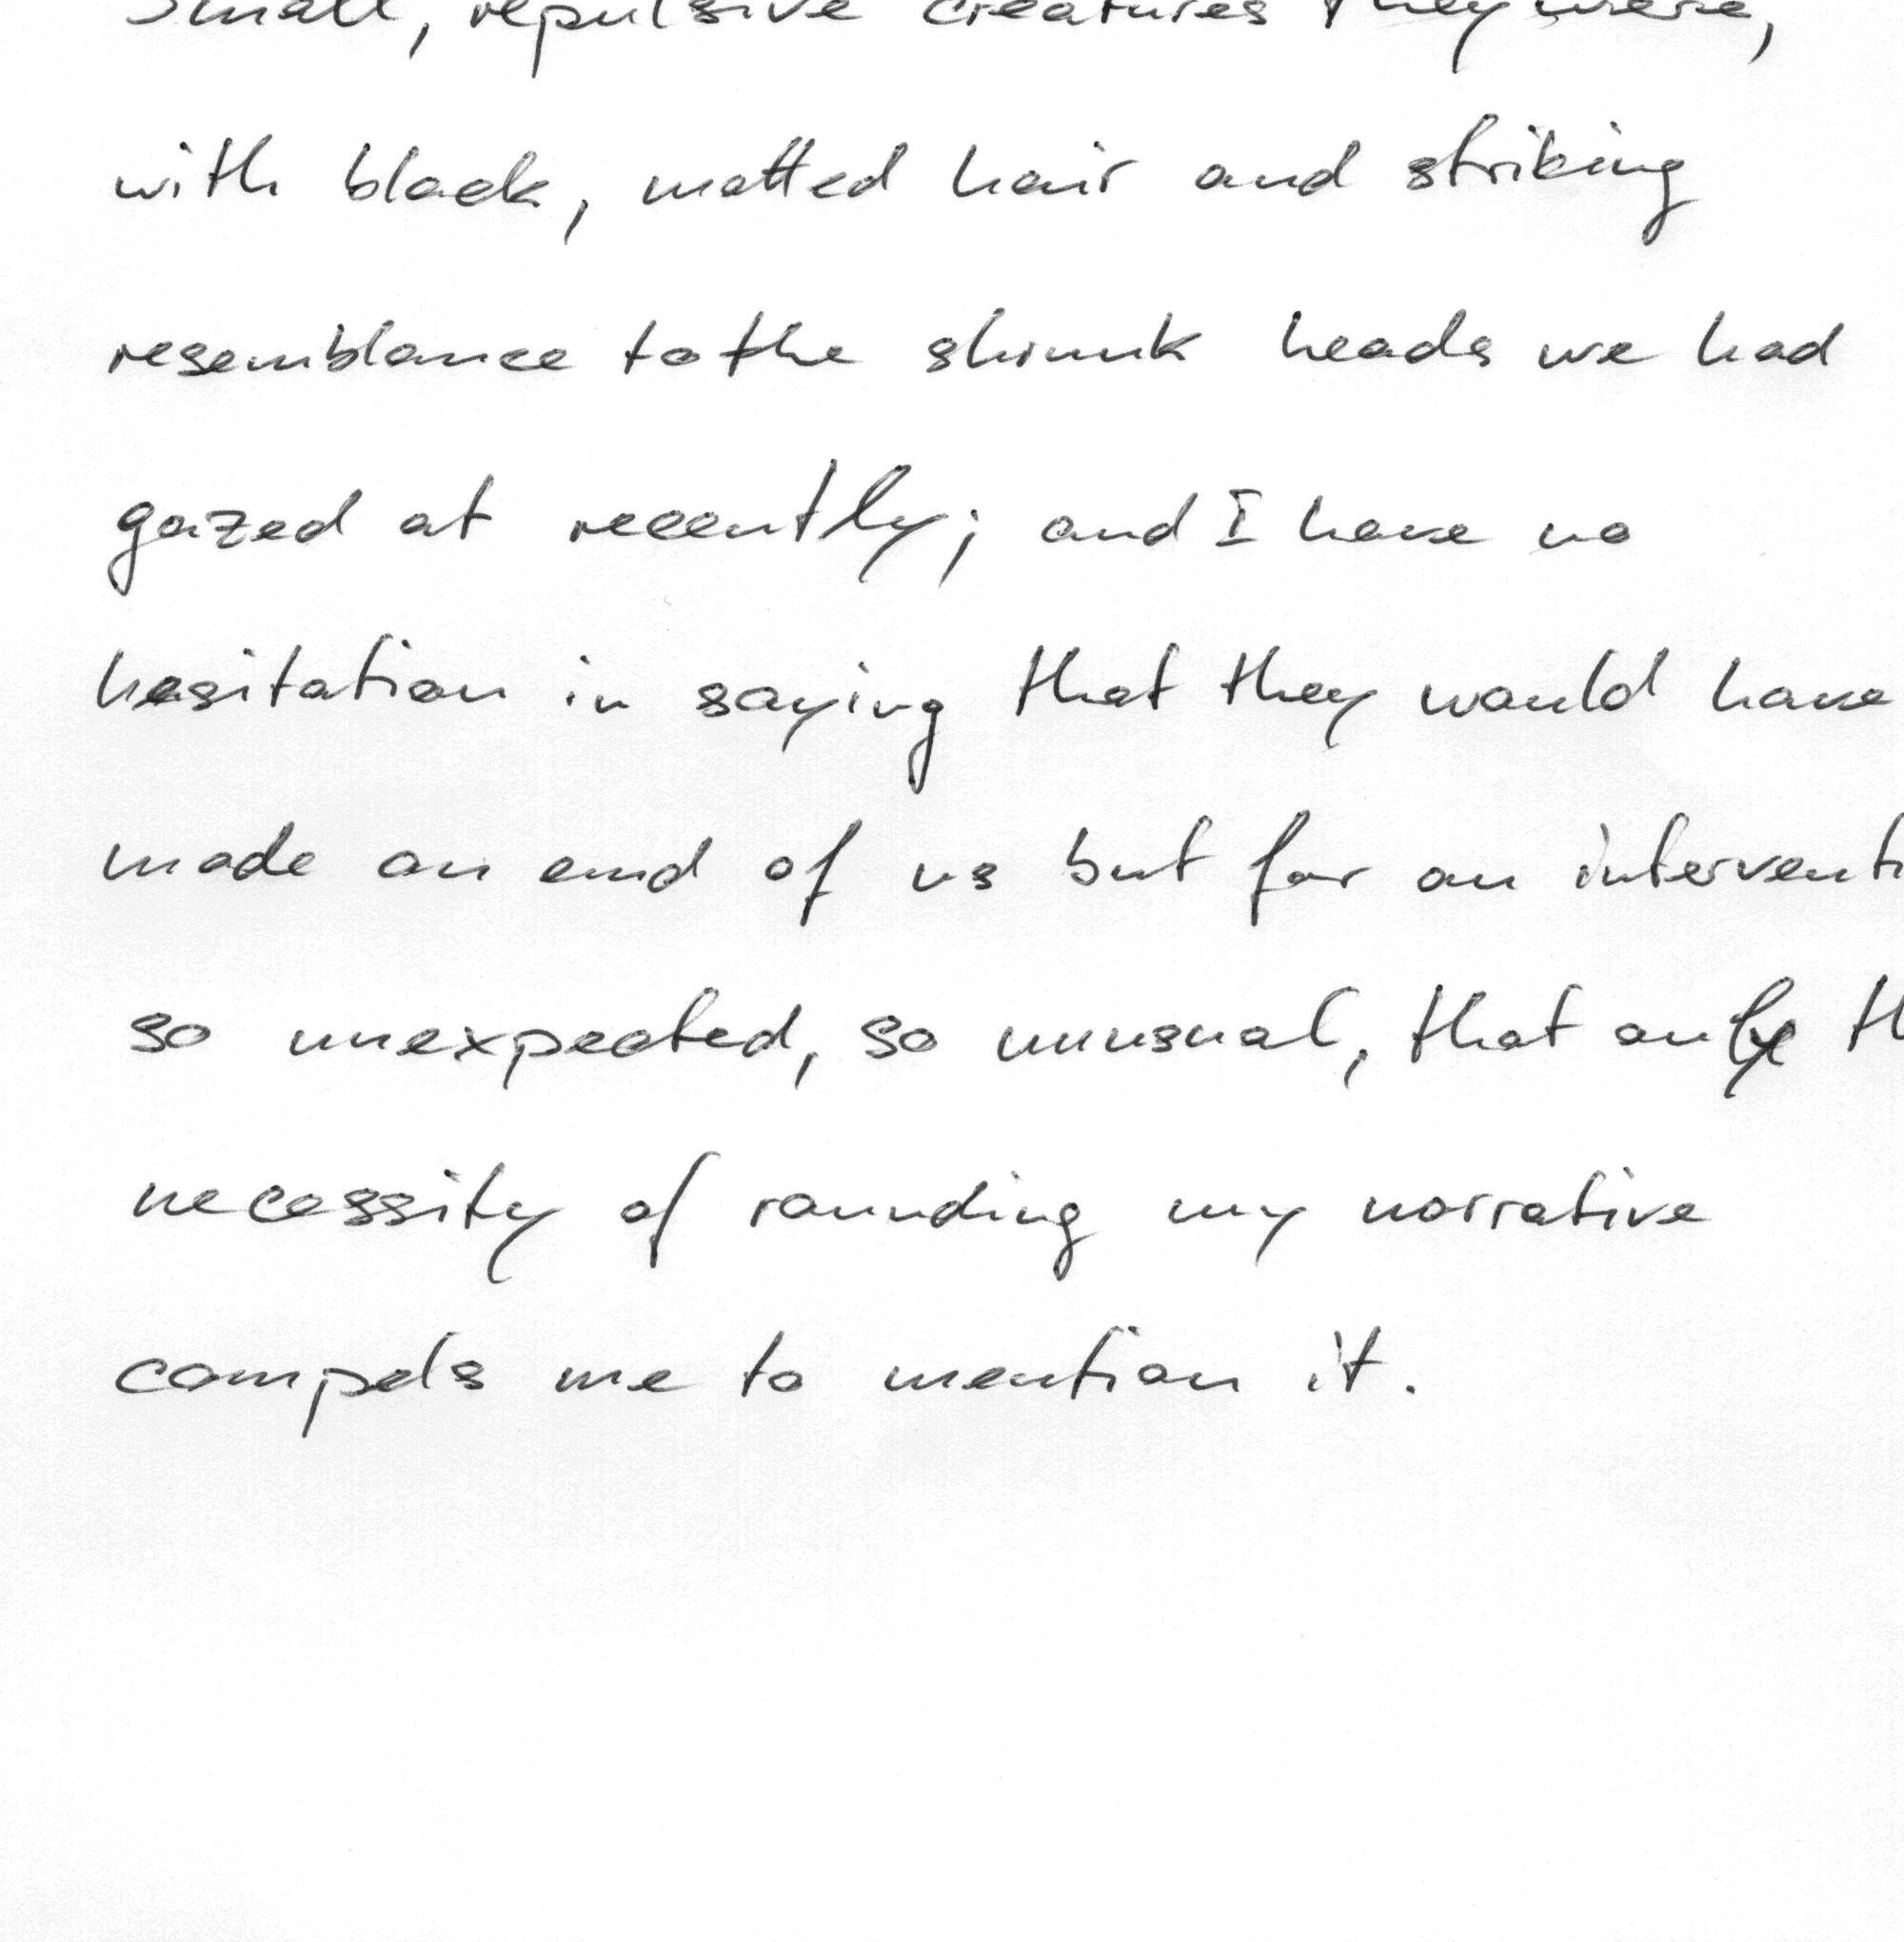 Small, repulsive creatures they were,
with black, matted hair and striking
resemblance to the shrunk heads we had
gazed at recently; and I have no
hesitation in saying that they would have
made an end of us but for an interventi
so unexpected, so unusual, that only th
necessity of rounding my narrative
compels me to mention it.